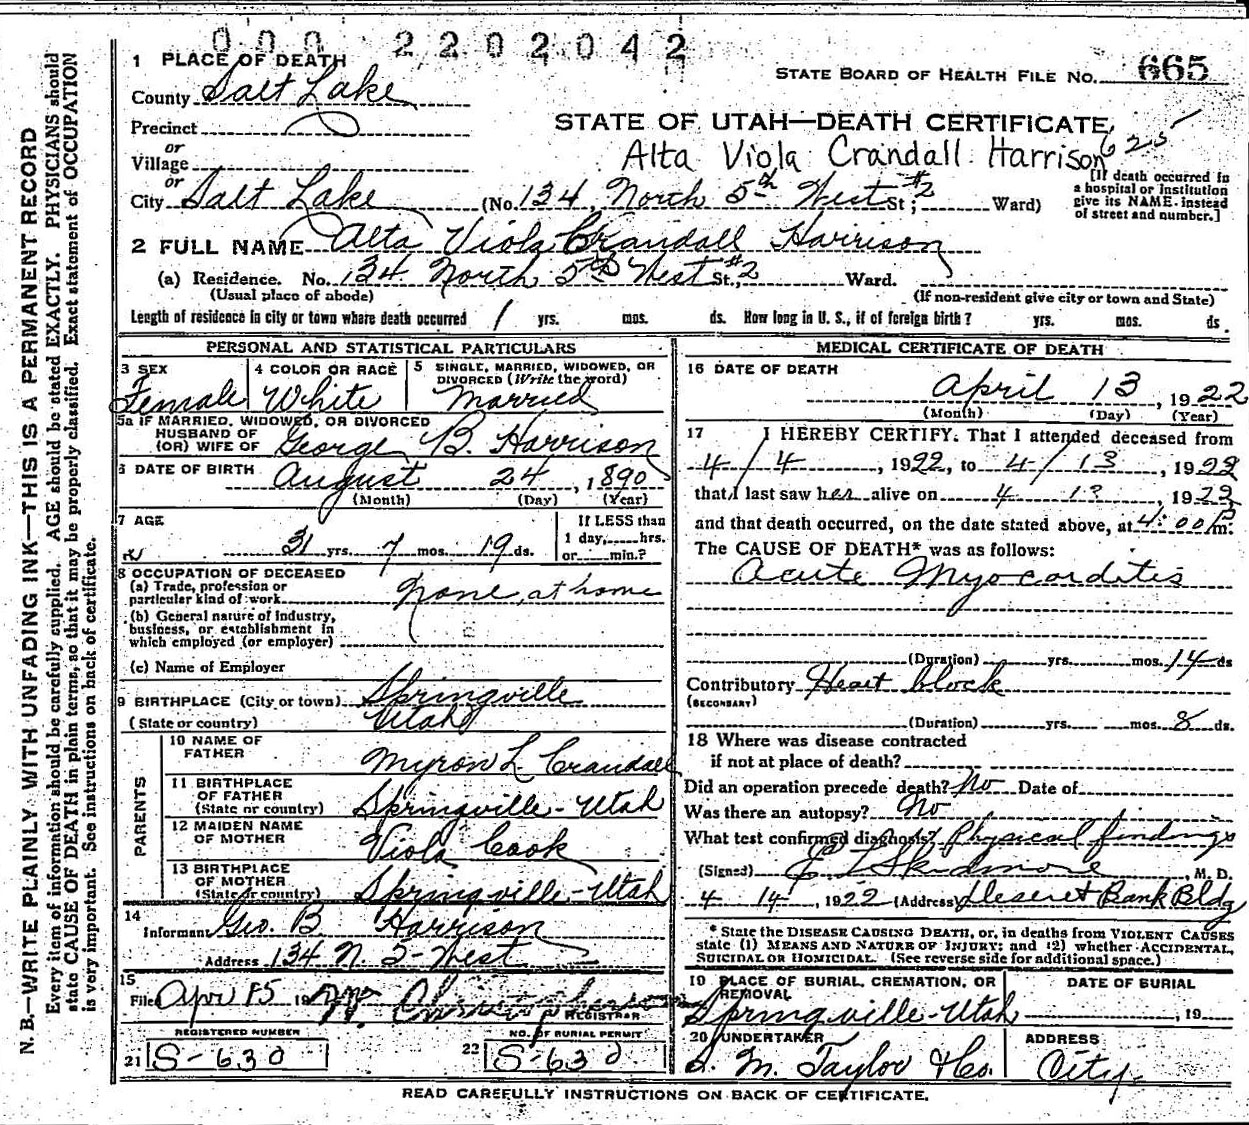 000 2202042
1 PLACE OF DEATH
STATE BOARD OF HEALTH FILE NO. 665
County Salt Lake
Precinct
STATE OF UTAH—DEATH CERTIFICATE
or
Village
Alta Viola Crandall Harrison 625
or
City Salt Lake (No. 134, North 5th West #2 St; Ward)
[If death occurred in
a hospital or institution
give its NAME instead
of street and number.]
2 FULL NAME Alta Viola Crandall Harrison
(a) Residence. No. 134 North 5th West #2 St., Ward.
(Usual place of abode) (If non-resident give city or town and State)
Length of residence in city or town where death occurred 1 yrs. mos. ds. How long in U. S., if of foreign birth? yrs. mos. ds.
PERSONAL AND STATISTICAL PARTICULARS
3 SEX
Female
4 COLOR OR RACE
White
5 SINGLE, MARRIED, WIDOWED, OR
DIVORCED (Write the word)
Married
5a IF MARRIED, WIDOWED, OR DIVORCED
HUSBAND OF
(OR) WIFE OF George B. Harrison
6 DATE OF BIRTH August 24, 1890
(Month) (Day) (Year)
7 AGE
31 yrs. 7 mos. 19 ds.
If LESS than
1 day, hrs.
or min.?
8 OCCUPATION OF DECEASED
(a) Trade, profession or
particular kind of work None, at home
(b) General nature of industry,
business, or establishment in
which employed (or employer)
(c) Name of Employer
9 BIRTHPLACE (City or town) Springville
(State or country) Utah
PARENTS
10 NAME OF
FATHER Myron L. Crandall
11 BIRTHPLACE
OF FATHER
(State or country) Springville-Utah
12 MAIDEN NAME
OF MOTHER Viola Cook
13 BIRTHPLACE
OF MOTHER
(State or country) Springville-Utah
14
Informant Geo. B. Harrison
Address 134 N. 5-West
15
Filed Apr 15 19
REGISTRAR
REGISTERED NUMBER
21 S-630
NO. OF BURIAL PERMIT
22 S-630
MEDICAL CERTIFICATE OF DEATH
16 DATE OF DEATH
April 13, 1922
(Month) (Day) (Year)
17 I HEREBY CERTIFY. That I attended deceased from
4/4, 1922, to 4/13, 1922
that I last saw her alive on 4 13, 1922,
and that death occurred, on the date stated above, at 4:00 P m.
The CAUSE OF DEATH* was as follows:
Acute Myocarditis
(Duration) yrs. mos. 14 ds
Contributory Heart block
(SECONDARY)
(Duration) yrs. mos. 8 ds.
18 Where was disease contracted
if not at place of death?
Did an operation precede death? No Date of
Was there an autopsy? No
What test confirmed diagnosis? Physical findings
(Signed) Skidmore, M. D.
4 14, 1922 (Address) Deseret Bank Bldg
* State the DISEASE CAUSING DEATH, or, in deaths from VIOLENT CAUSES
state (1) MEANS AND NATURE OF INJURY; and (2) whether ACCIDENTAL,
SUICIDAL OR HOMICIDAL. (See reverse side for additional space.)
19 PLACE OF BURIAL, CREMATION, OR
REMOVAL
Springville-Utah
DATE OF BURIAL
, 19
20 UNDERTAKER
S. M. Taylor & Co.
ADDRESS
City.
READ CAREFULLY INSTRUCTIONS ON BACK OF CERTIFICATE.
N. B.—WRITE PLAINLY WITH UNFADING INK—THIS IS A PERMANENT RECORD
Every item of information should be carefully supplied. AGE should be stated EXACTLY. PHYSICIANS should
state CAUSE OF DEATH in plain terms, so that it may be properly classified. Exact statement of OCCUPATION
is very important. See instructions on back of certificate.